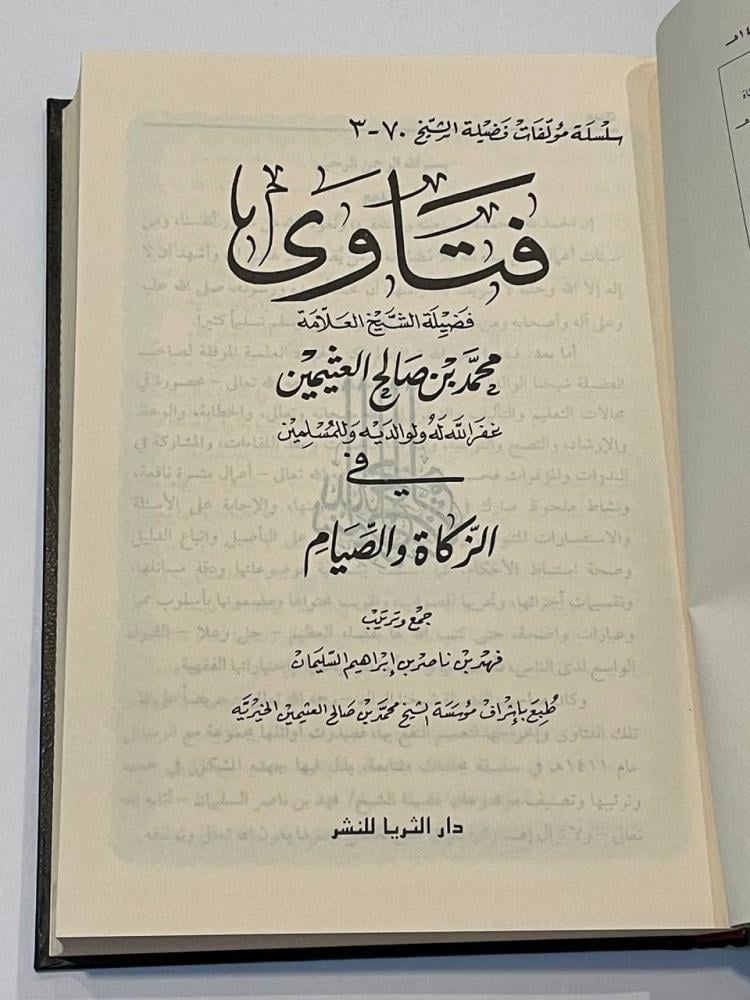 سلسلة مؤلفات فضيلة الشيخ ٧٠-٣
فتاوى
فضيلة الشيخ العلامة
محمد بن صالح العثيمين
غفر الله له ولوالديه وللمسلمين
في
الزكاة والصيام
جمع وترتيب
فهد بن ناصر بن إبراهيم السليمان
طبع بإشراف مؤسسة الشيخ محمد بن صالح العثيمين الخيرية
دار الثريا للنشر